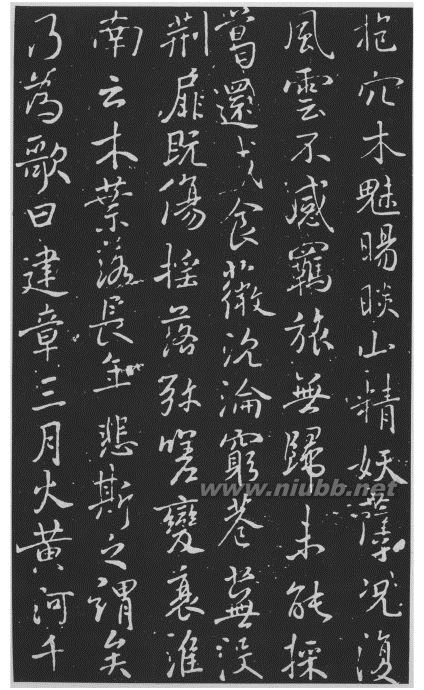 抱穴木魅睗睒山精妖孽况復
風雲不感羈旅無歸未能採
葛還成食薇沉淪窮巷蕪没
荊扉既傷搖落弥嗟變衰淮
南云木葉落長年悲斯之謂矣
乃為歌曰建章三月火黃河千
www.niubb.net